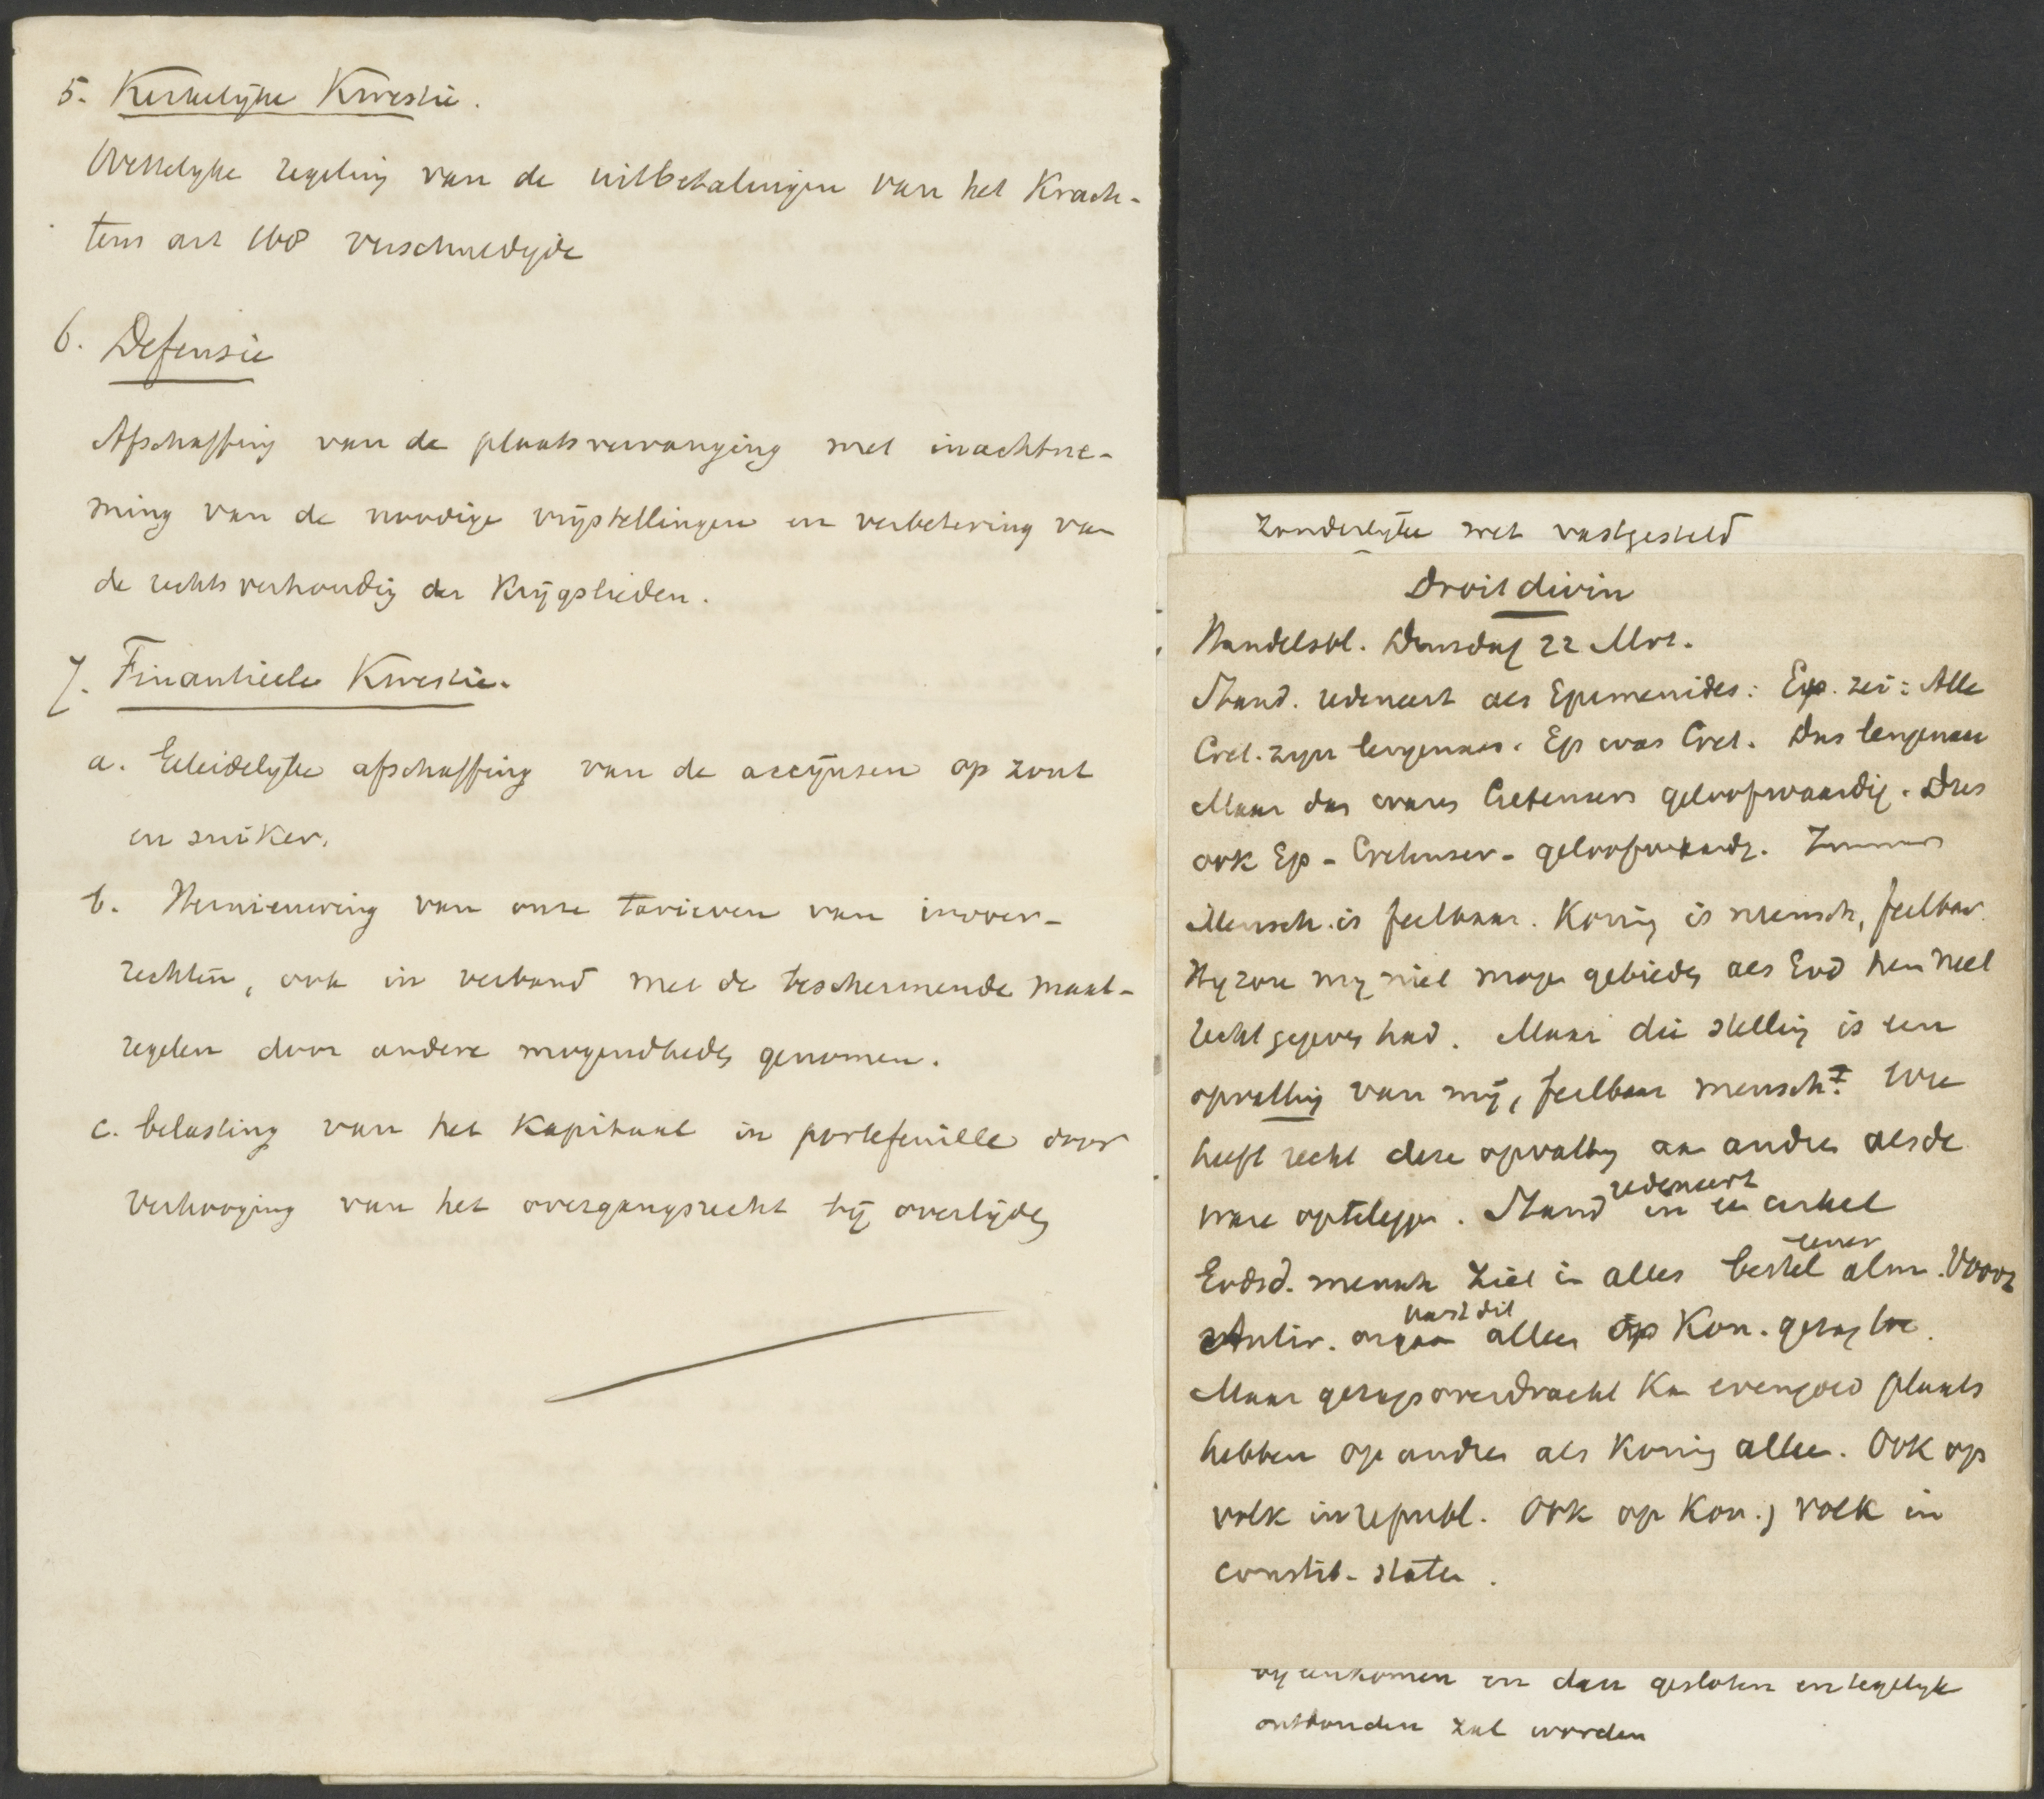 5. Kerkelijke Kwestie.
Wettelyke regeling van de uitbetalingen van het Krach-
tens art 168 verschuldigde
6. Defensie
Afschaffing van de plaatsvervanging met inachtne-
ming van de noodige vrijstellingen en verbetering van
de rechtsverhoudig der Krijgslieden.
7. Finantieele Kwestie.
a. Geleidelyke afschaffing van de accijnsen op zout
en suiker.
b. Hernieuwing van onze tarieven van invoer-
rechten, ook in verband met de beschermende maat-
regelen door andere mogendheden genomen.
c. belasting van het Kapitaal in portefeuille door
verhooging van het overgangsrecht bij overlijden
zonderlyke wet vastgesteld
Droit divin
Handelsbl. Dinsdag 22 Mrt.
Stand. redeneert als Epimenides: Ep. zei: Alle
Cret. zyn leugenaars. Ep was Cret. Dus leugenaar
Maar dan waren Cretensers geloofwaardig. Dus
ook Ep - Cretenser - geloofwaardig.
Mensch is feilbaar. Koning is mensch, feilbaar.
Hy zou my niet mogen gebieden als God hem niet
recht gegeven had. Maar die stelling is een
opvatting van mij, feilbaar mensch. Wie
heeft recht deze opvatting aan andren als de
ware opteleggen. Stand redeneert in een cirkel
Godsd. mensch ziet in alles bestel eener alm. Voorz
Antir. orgaan past dit alleen op Kon. gezag toe.
Maar gezagsoverdracht Kan evengoed plaats
hebben op andren als Koning alleen. Ook op
volk in republ. Ook op Kon. volk in
constit. staten.
byeenkomen en dan gesloten en tegelyk
ontbonden zal worden